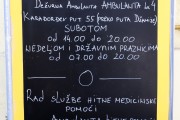 DEŽURNA AMBULANTA AMBULANTA br 4
KARAĐORĐEV PUT 55 (PREKO PUTA DŽAMIJE)
SUBOTOM
od 14.00 do 20.00
NEDELJOM i DRŽAVNIM PRAZNICIMA
od 07.00 do 20.00
RAD SLUŽBE HITNE MEDICINSKE
POMOĆI